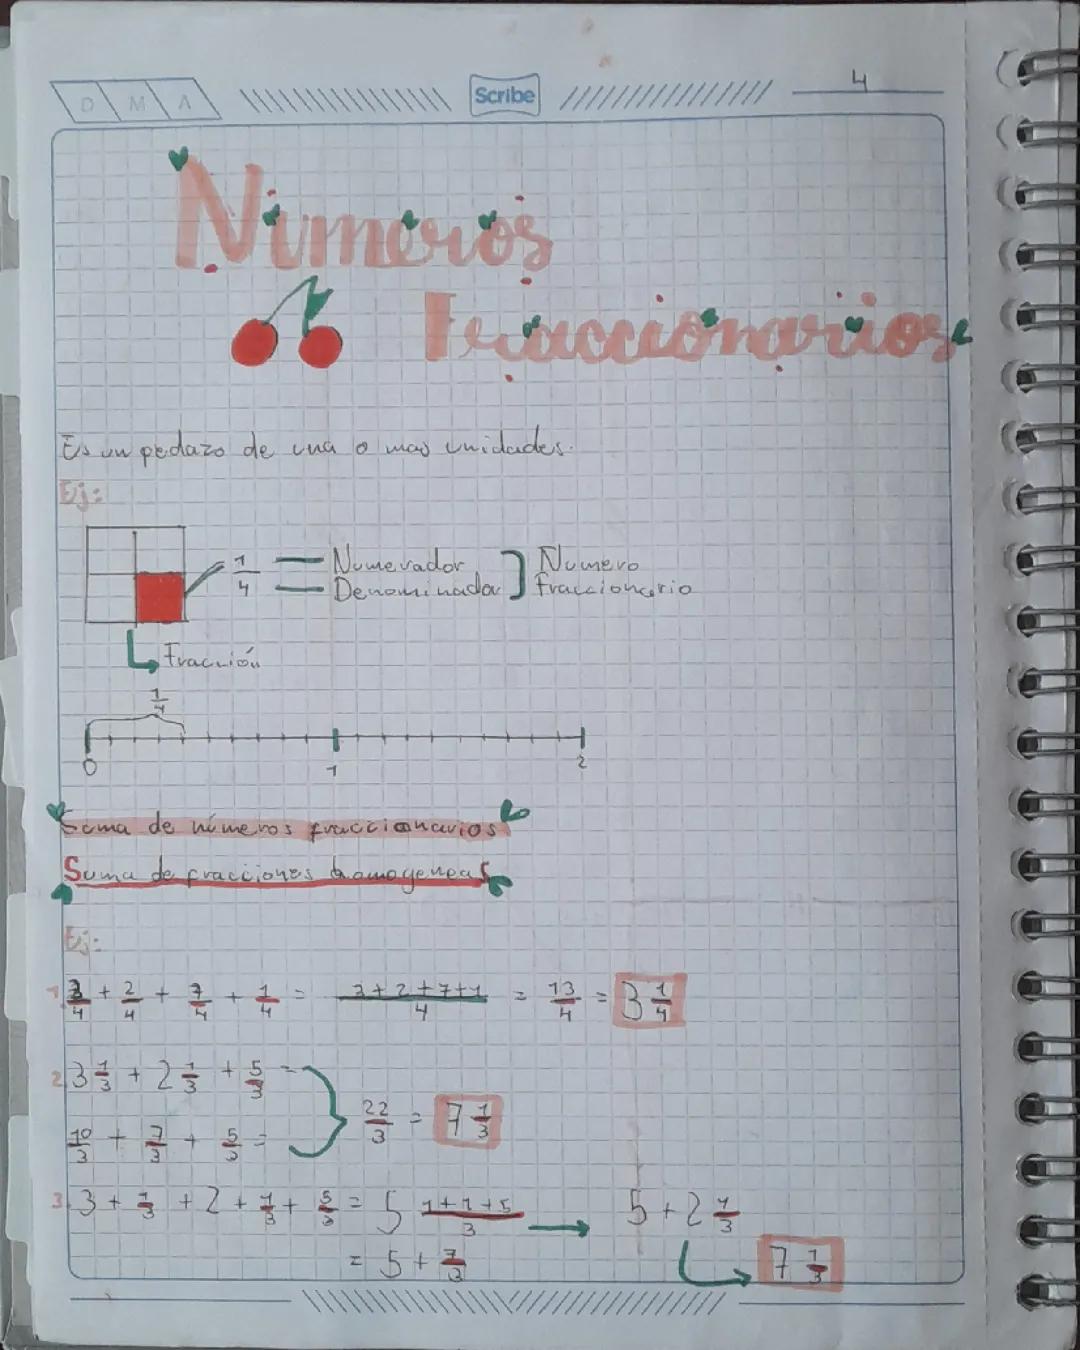 D M A Scribe 4
Números
Fraccionarios
Es un pedazo de una o mas unidades.
Ej:
1/4 Numerador Denominador ] Numero fraccionario
Fracción
1/4
0 1 2
Suma de números fraccionarios
Suma de fracciones homogeneas
Ej:
1 3/4 + 2/4 + 7/4 + 1/4 = 3+2+7+1/4 = 13/4 = 3 1/4
2 3 1/3 + 2 1/3 + 5/3 =
10/3 + 7/3 + 5/3 = 22/3 = 7 1/3
3. 3 + 1/3 + 2 + 1/3 + 5/3 = 5 1+1+5/3 → 5 + 2 1/3
= 5 + 7/3 7 1/3